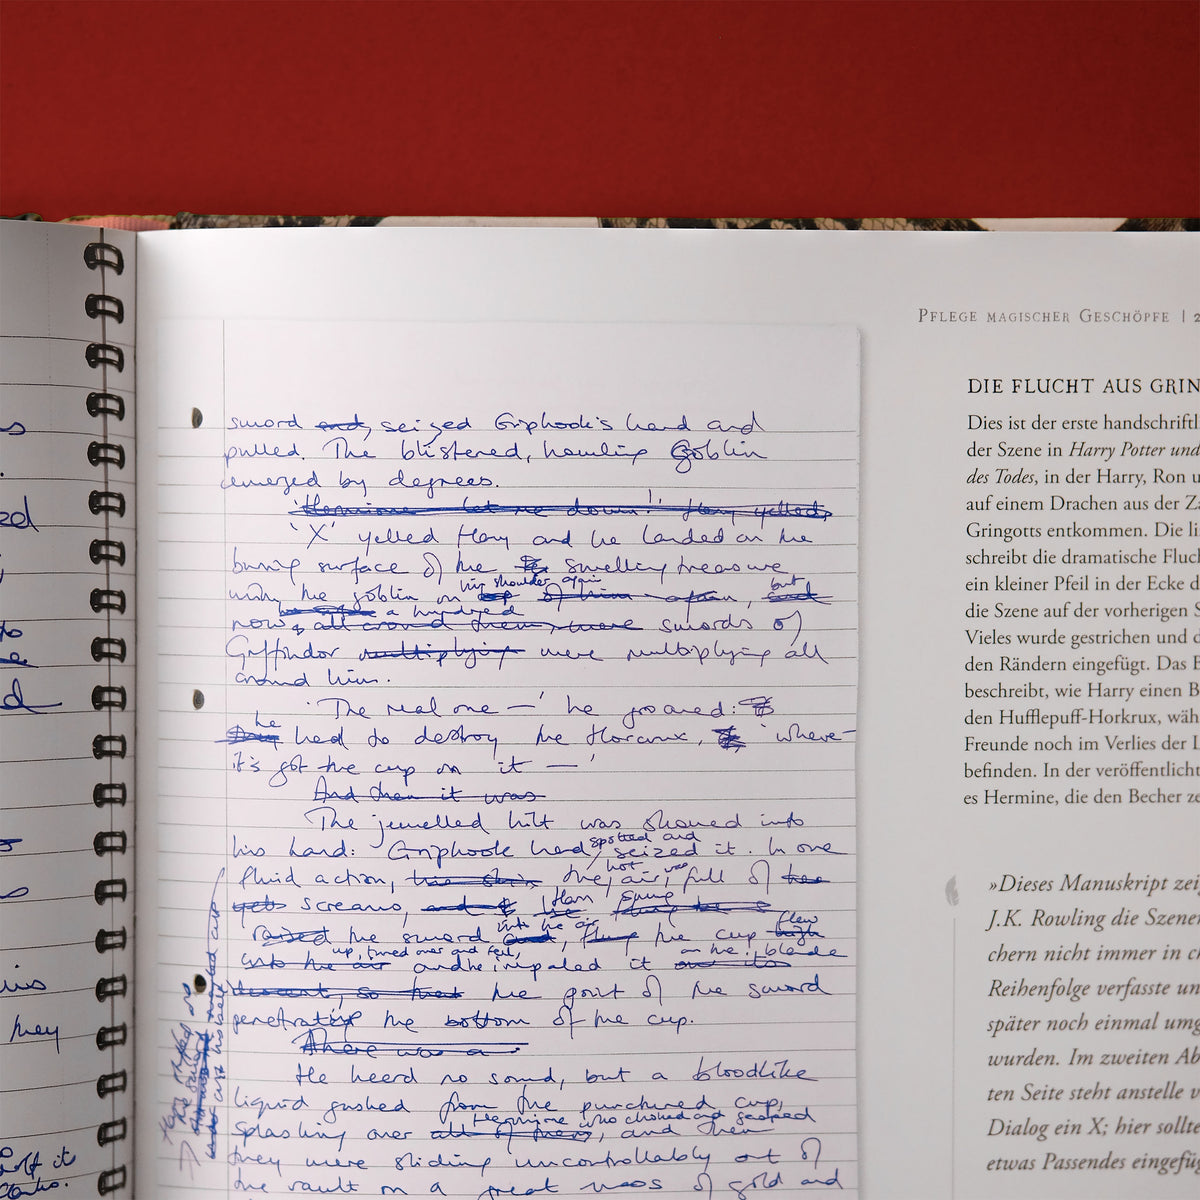 PFLEGE MAGISCHER GESCHÖPFE | 2
sword and, seized Griphook's hand and
pulled. The blistered, howling goblin
emerged by degrees.
'Hermione let me down!' Harry yelled,
'X' yelled Harry and he landed on the
burning surface of the swelling treasure
his shoulder again but
with the goblin on of him again, and
a hundred
now, all around them, were swords of
Gryffindor multiplying were multiplying all
around him.
'The real one —' he groaned:
he
had to destroy the Horcrux, 'where—
it's got the cup on it —'
And then it was
The jewelled hilt was shoved into
spotted and
his hand: Griphook had seized it. In one
hot was
fluid action, the air, full of
Harry swung
yells screams, and the
into the air flew
raised the sword and, flung the cup high
up, turned over and fell, on the blade
into the air and he impaled it on its
descent, so that the point of the sword
penetrated the bottom of the cup.
There was a
He heard no sound, but a bloodlike
liquid gushed from the punctured cup,
Hermione who choked and gasped
splashing over all of them, and then
they were sliding uncontrollably out of
the vault on a great mass of gold and
they
DIE FLUCHT AUS GRIN
Dies ist der erste handschriftl
der Szene in Harry Potter und
des Todes, in der Harry, Ron u
auf einem Drachen aus der Za
Gringotts entkommen. Die li
schreibt die dramatische Fluch
ein kleiner Pfeil in der Ecke d
die Szene auf der vorherigen S
Vieles wurde gestrichen und d
den Rändern eingefügt. Das B
beschreibt, wie Harry einen B
den Hufflepuff-Horkrux, wäh
Freunde noch im Verlies der L
befinden. In der veröffentlicht
es Hermine, die den Becher ze
»Dieses Manuskript zei
J.K. Rowling die Szenen
chern nicht immer in ch
Reihenfolge verfasste un
später noch einmal umg
wurden. Im zweiten Ab
ten Seite steht anstelle v
Dialog ein X; hier sollte
etwas Passendes eingefüg